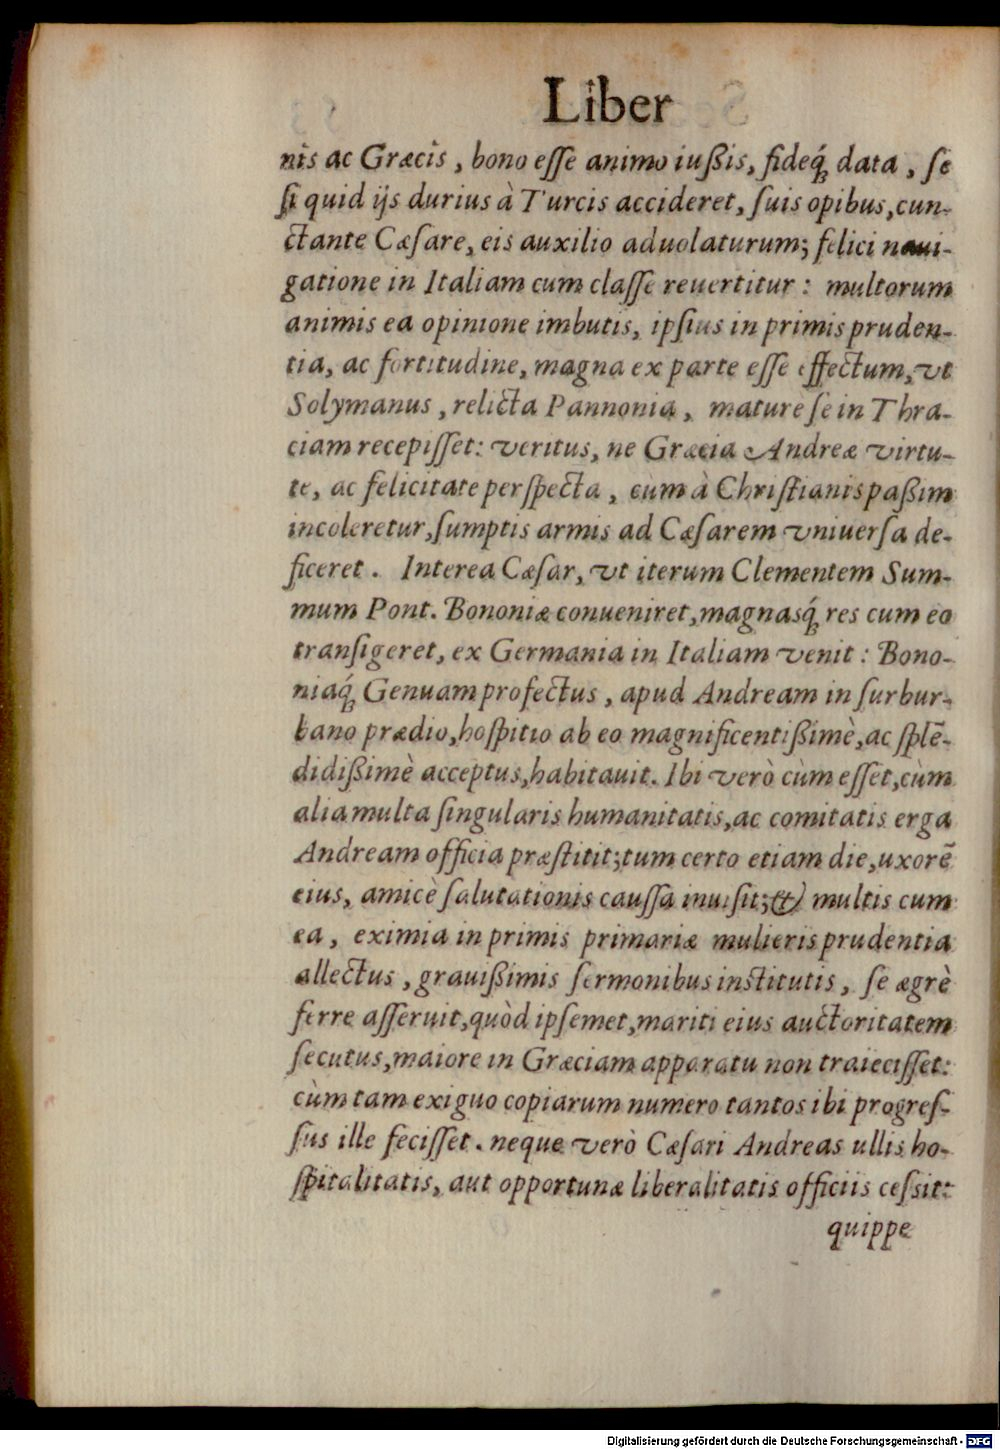 Liber
nis ac Græcis, bono eſſe animo iuſsis, fideq́; data, ſe
ſi quid ijs durius à Turcis accideret, ſuis opibus, cun-
ctante Cæſare, eis auxilio aduolaturum; felici naui-
gatione in Italiam cum claſſe reuertitur: multorum
animis ea opinione imbutis, ipſius in primis pruden-
tia, ac fortitudine, magna ex parte eſſe effectum, vt
Solymanus, relicta Pannonia, maturè ſe in Thra-
ciam recepiſſet: veritus, ne Græcia Andreæ virtu-
te, ac felicitate perſpecta, cum à Chriſtianis paßim
incoleretur, ſumptis armis ad Cæſarem vniuerſa de-
ficeret. Interea Cæſar, vt iterum Clementem Sum-
mum Pont. Bononiæ conueniret, magnasq́; res cum eo
tranſigeret, ex Germania in Italiam venit: Bono-
niaq́; Genuam profectus, apud Andream in ſurbur-
bano prædio, hoſpitio ab eo magnificentißimè, ac ſplẽ-
didißimè acceptus, habitauit. Ibi verò cùm eſſet, cùm
alia multa ſingularis humanitatis, ac comitatis erga
Andream officia præſtitit; tum certo etiam die, uxorẽ
eius, amicè ſalutationis cauſſa inuiſit; & multis cum
ea, eximia in primis primariæ mulieris prudentia
allectus, grauißimis ſermonibus inſtitutis, ſe ægrè
ferre aſſeruit, quòd ipſemet, mariti eius auctoritatem
ſecutus, maiore in Græciam apparatu non traieciſſet:
cùm tam exiguo copiarum numero tantos ibi progreſ-
ſus ille feciſſet. neque verò Cæſari Andreas ullis ho-
ſpitalitatis, aut opportunæ liberalitatis officiis ceſsit:
quippe
Digitalisierung gefördert durch die Deutsche Forschungsgemeinschaft - DFG